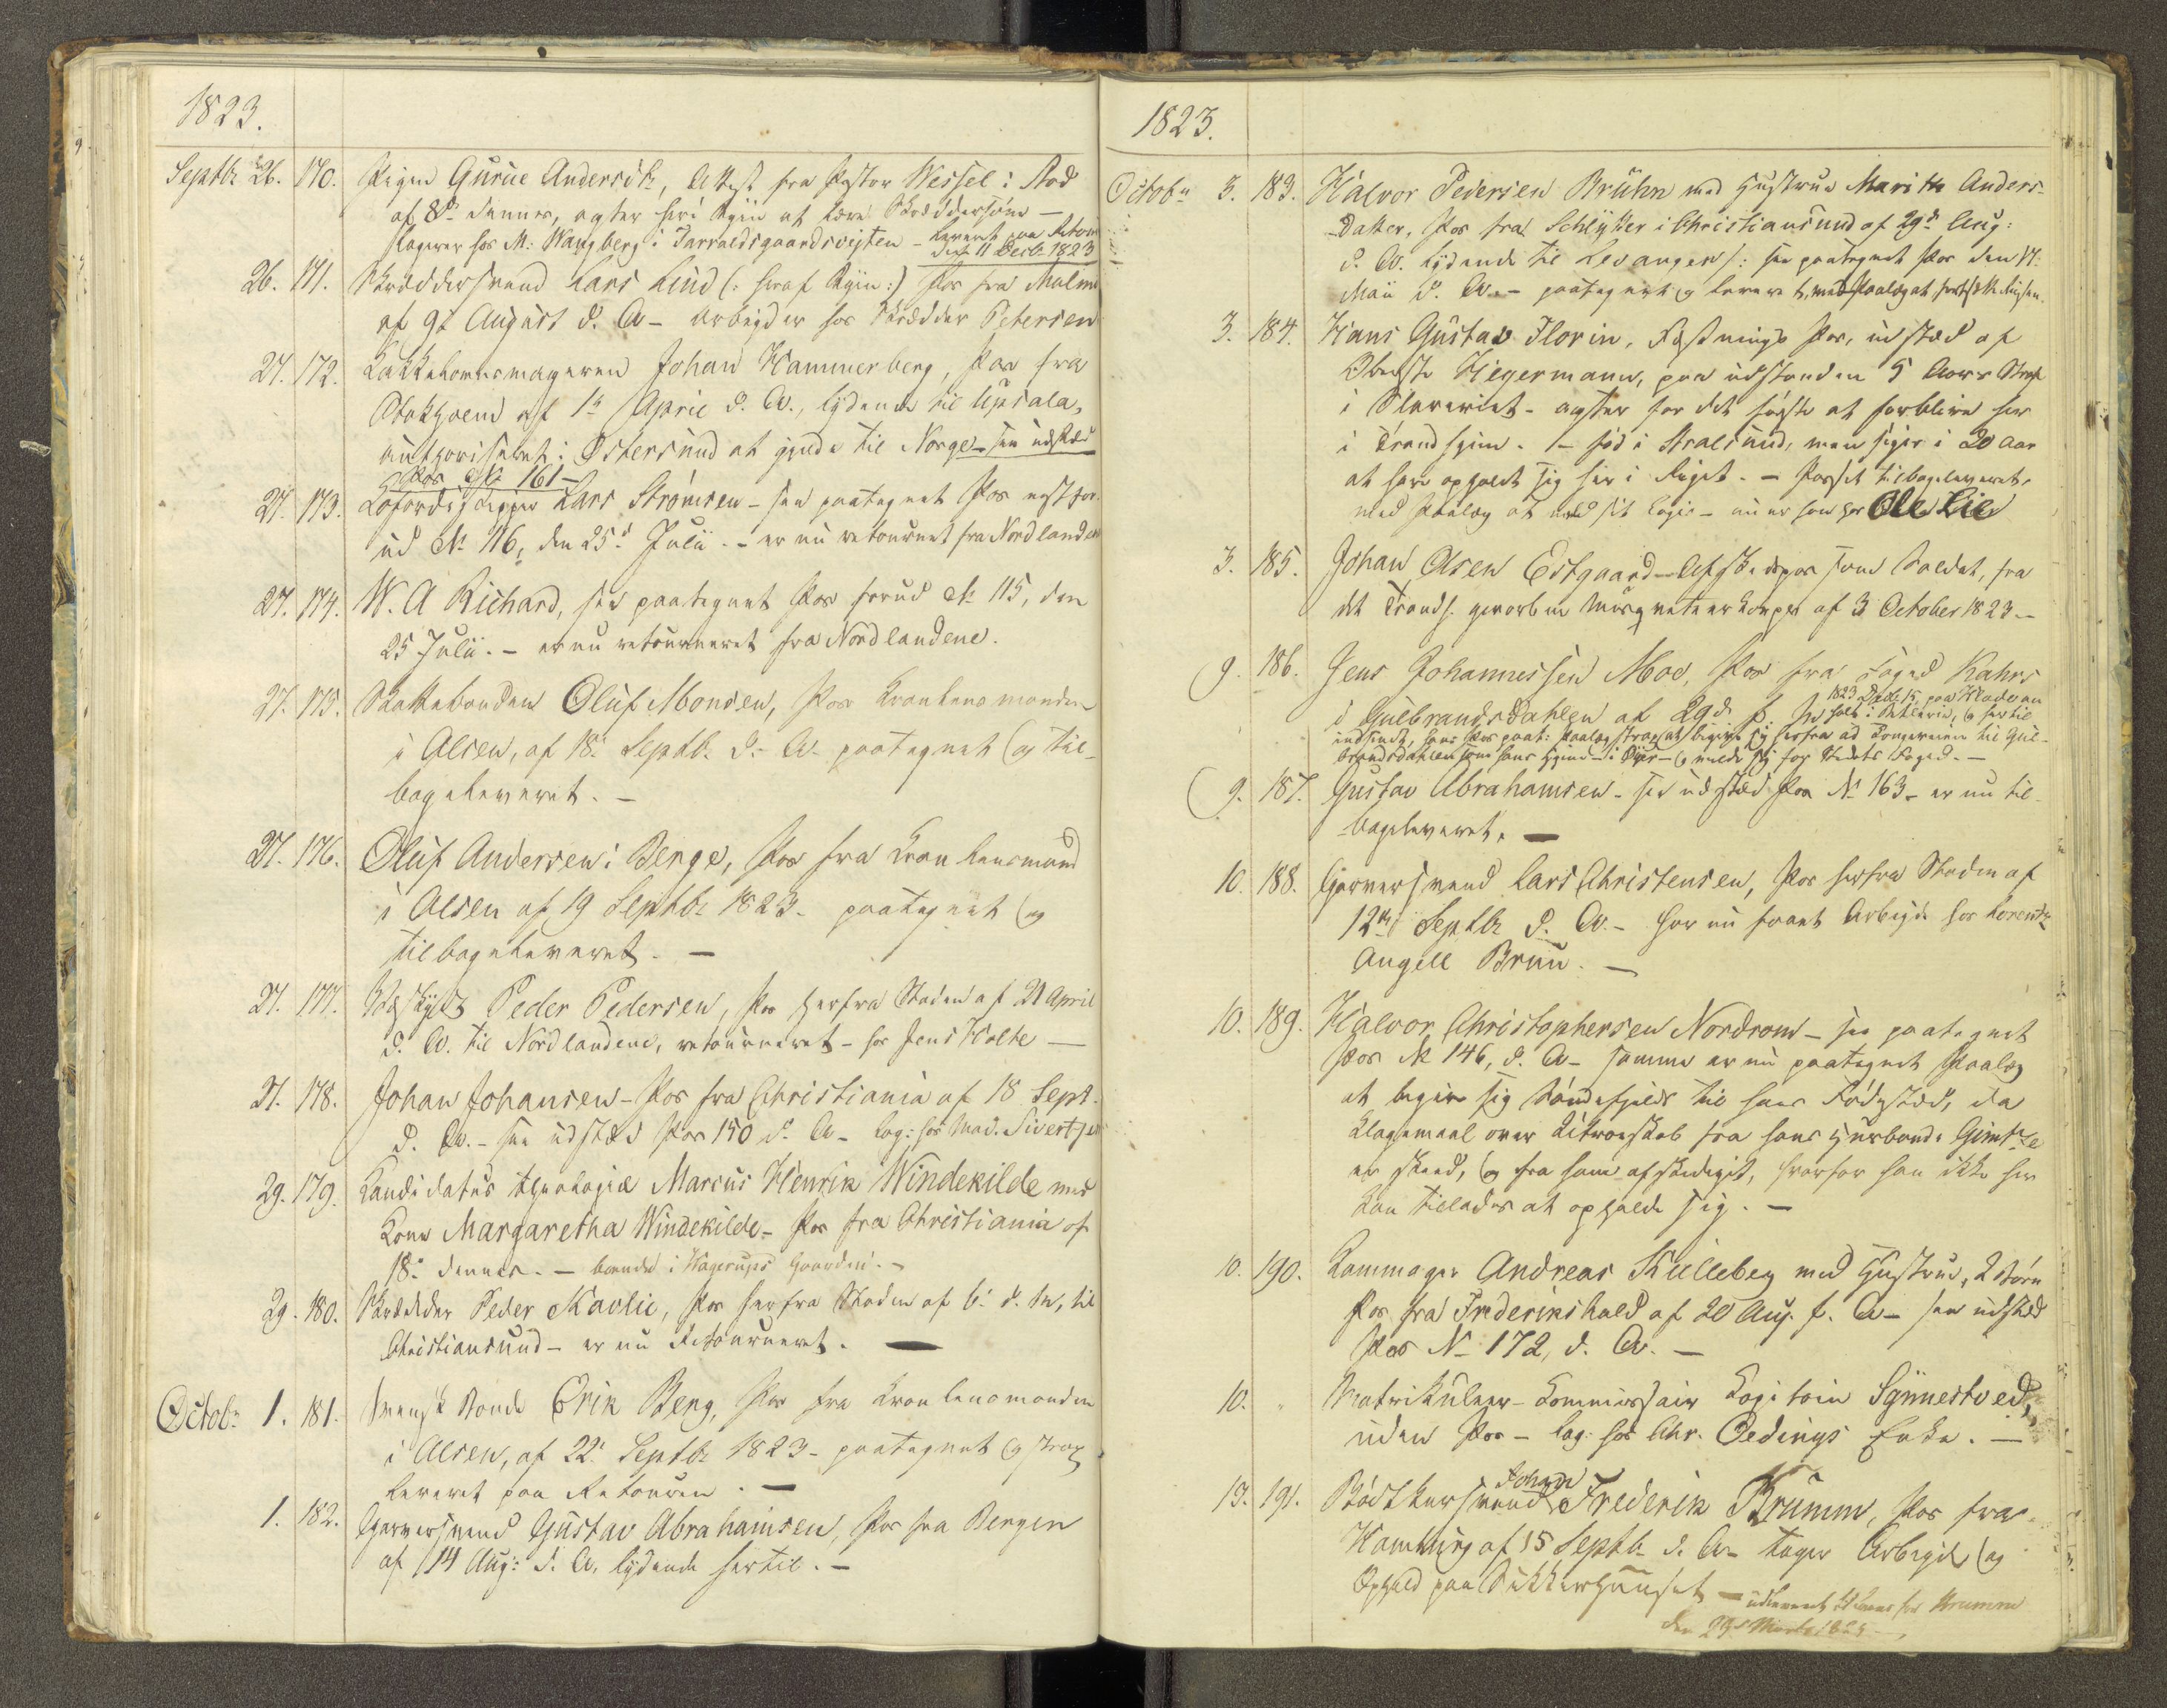 1823.
Septbr 26. 170. Pigen Gurue Andersdtr, Attest fra Pastor Wessel i Stod
af 8de dennes, agter her i Byen at lære Skræddersöm –
Logerer hos M: Wangberg i Jarraldsgaardsveyten – leveret paa Retour
den 11 Decbr 1823
26. 171. Skræddersvend Lars Lund (: her af Byen :) Pas fra Malmø
af 9de August d. A – arbeyder hos Skrædder Petersen
27. 172. Lakkehornsmageren Johan Hammerberg, Pas fra
Stokholm af 1te April d. A., lydende til Upsala,
authoriseret i Østersund at gjelde til Norge – see udstæd
Pas No 161 –
27. 173. Lars Strömsen – see paategnet Pas
ud No 116, den 25de Julii. – er nu retourneret fra Nordlandene
27. 174. W. A Richard, see paategnet Pas forud No 115, den
25 Julii. – er nu retourneret fra Nordlandene.
27. 175. Skattebonden Oluf Monsen, Pas Kronlensmanden
i Alsen, af 18de Septbr d. A. paategnet og til-
bageleveret. –
27. 176. Oluf Andersen i Berge, Pas fra Kron lensmand
i Alsen af 19 Septbr 1823. paategnet og
tilbageleveret. –
27. 177. Peder Pedersen, Pas herfra Staden af 21 April
d. A. til Nordlandene, retourneret – hos Jens Holte –
27. 178. Johan Johansen – Pas fra Christiania af 18 Sept.
d. A. – see udstæd Pas 150 d. A – log: hos Mad. Sivertsen
29. 179. Kandidatus theologiæ Marcus Henrik Windekilde med
Kone Margaretha Windekilde – Pas fra Christiania af
18de dennes. – boende i Hagerups Gaarden. –
29. 180. Skrædder Peder Kavlie, Pas herfra Staden af 6te d. M, til
Christiansund – er nu Retourneret. –
Octobr 1. 181. Svensk Bonde Erik Berg, Pas fra Kronlensmanden
i Alsen, af 22de Septbr 1823 – paategnet og strax
leveret paa Retouren. –
1. 182. Garversvend Gustav Abrahamsen, Pas fra Bergen
af 14 Aug: d. A. lydende hertil. –
1823.
Octobr 3. 183. Halvor Pedersen Brühn med Hustrue Marith Anders-
Datter, Pas fra Schlytter i Christiansund af 29de Aug:
d. A. lydende til Levanger /: see paategnet Pas den 17:
Maii d. A. – paategnet og leveret, med Paalæg at fortsætte Reisen.
3. 184. Hans Gustav Florin, Fæstnings Pas, udstæd af
Oberste Hegermann, paa udstanden 5 Aars Straf
i Slaveriet – agter for det første at forblive her
i Trondhjem. – född i Stralsund, men siger i 20 Aar
at have opholdt sig her i Riget. – Passet tilbageleveret,
med Paalæg at melde sit Logis – nu er han hos Ole Lie
3. 185. Johan Olsen Estgaard – Afskedspas som Soldat, fra
det Trondh. gevorbne Musqveteerkorps af 3 October 1823. –
9. 186. Jens Johannessen Moe, Pas fra Foged Rahrs
i Gulbrandsdahlen af 29de
1823 paa
indsendt, hans Pas paat: Paalæg strax at begive sig herfra ad Kongeveien til Gul-
brandsdahlen som hans Hjem – i Øyer – og melde sig for Stedets Foged. –
9. 187. Gustav Abrahamsen – see udstæd Pas No 163 – er nu til-
bageleveret. –
10. 188. Garversvend Lars Christensen, Pas herfra Staden af
12te Septbr d. A. – har nu faaet Arbeyde hos Lorentz
Angell Bruu. –
10. 189. Halvor Christophersen Nordrom – see paategnet
Pas No 146, d. A – samme er nu paategnet Paalæg
at begive sig söndenfjelds til hans Födested, da
Klagemaal over Utroeskab fra hans Huusbonde Gimtze
er skeed, og fra ham afskediget, hvorfor han ikke her
kan tillades at opholde sig. –
10. 190. Kammager Andreas Kulleberg med Hustrue, 2 Börn
Pas fra Frederikshald af 20 Aug. f. A – see udstæd
Pas No 172, d. A. –
10. " Matrikuleer-Kommissair Kapitain Synnestved,
uden Pas – log: hos Chr. Oedings Enke. –
13. 191. Bödkersvend Johan Frederik Krumm, Pas fra
Hamburg af 15 Septbr d. A – tager Arbeyde og
Ophold paa Sukkerhuuset – udleveret Passet for Krumm
den 29de Martz 1825 –